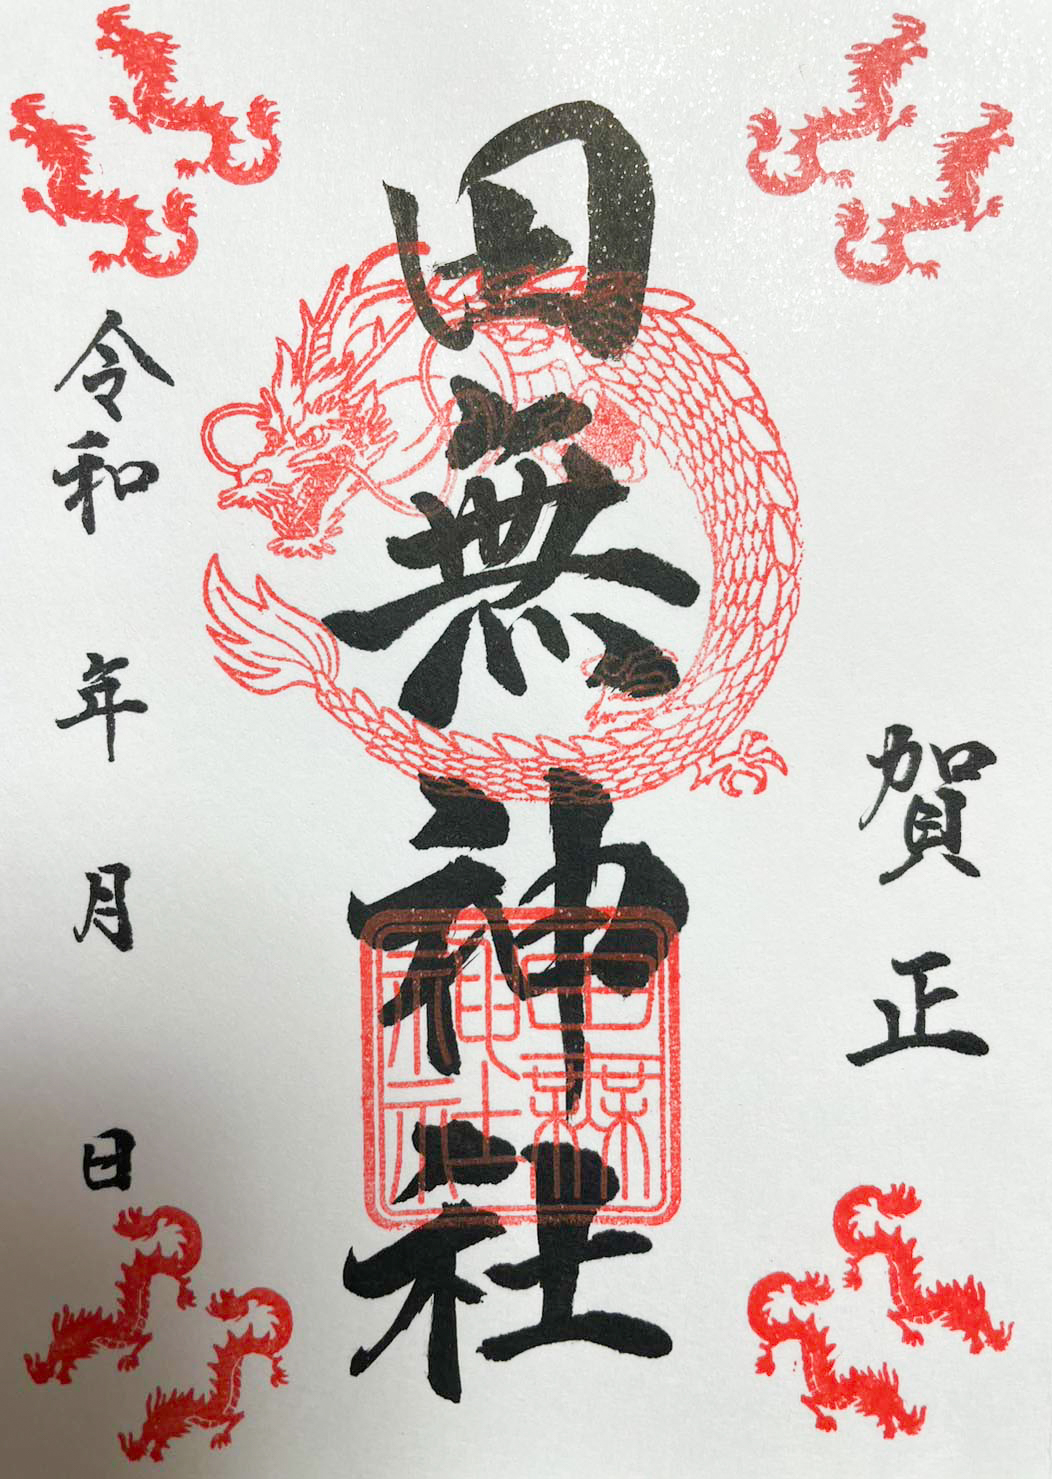 賀正
田無神社
田無
神社
令和 年 月 日